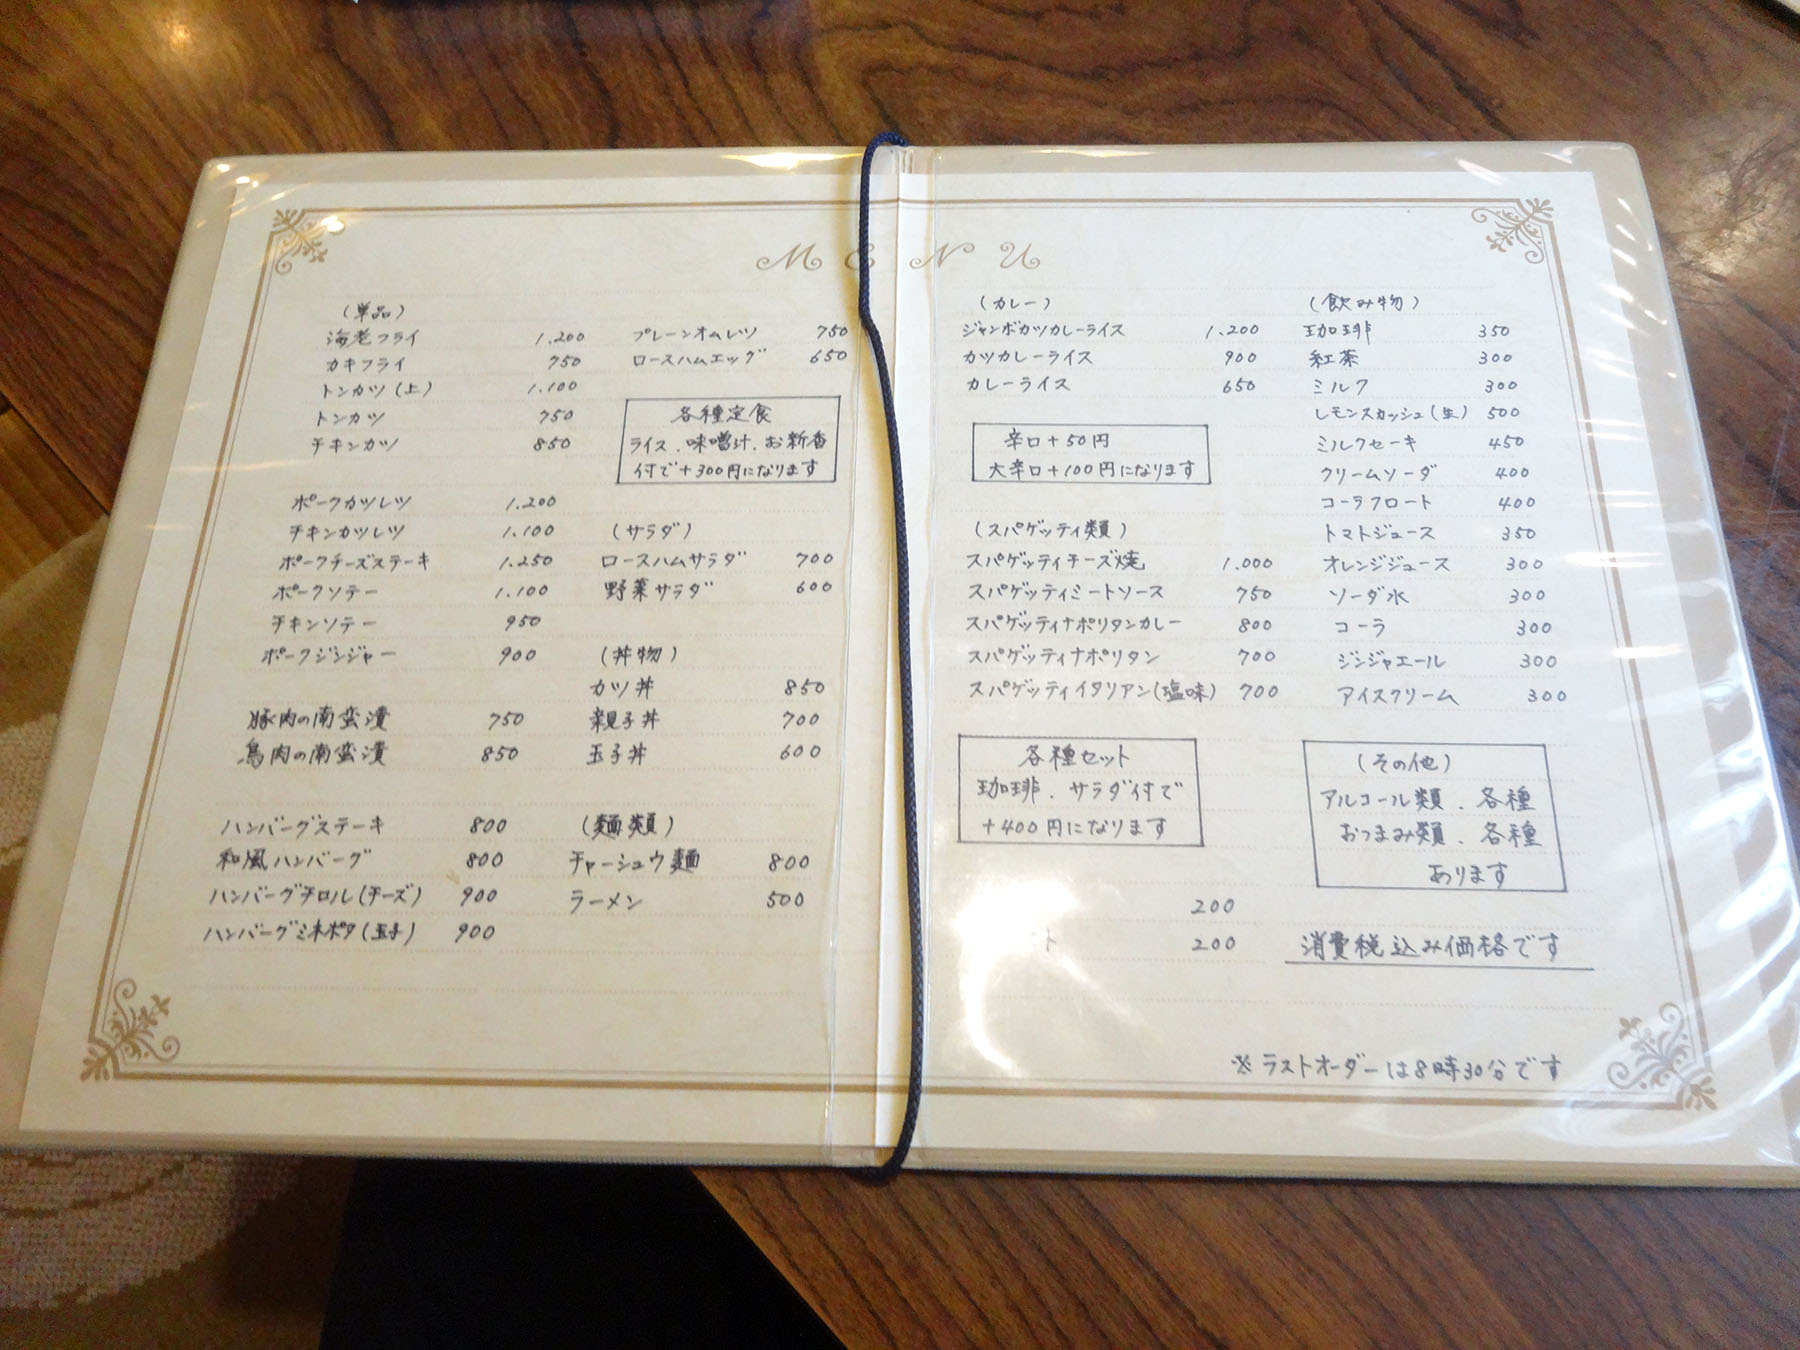 MENU
(単品)
海老フライ 1.200
カキフライ 750
トンカツ(上) 1.100
トンカツ 750
チキンカツ 850
ポークカツレツ 1.200
チキンカツレツ 1.100
ポークチーズステーキ 1.250
ポークソテー 1.100
チキンソテー 950
ポークジンジャー 900
豚肉の南蛮漬 750
鳥肉の南蛮漬 850
ハンバーグステーキ 800
和風ハンバーグ 800
ハンバーグチロル(チーズ) 900
ハンバーグミネポタ(玉子) 900
プレーンオムレツ 750
ロースハムエッグ 650
各種定食
ライス、味噌汁、お新香
付で+300円になります
(サラダ)
ロースハムサラダ 700
野菜サラダ 600
(丼物)
カツ丼 850
親子丼 700
玉子丼 600
(麺類)
チャーシュウ麺 800
ラーメン 500
(カレー)
ジャンボカツカレーライス 1.200
カツカレーライス 900
カレーライス 650
辛口+50円
大辛口+100円になります
(スパゲッティ類)
スパゲッティチーズ焼 1.000
スパゲッティミートソース 750
スパゲッティナポリタンカレー 800
スパゲッティナポリタン 700
スパゲッティイタリアン(塩味) 700
各種セット
珈琲、サラダ付で
+400円になります
200
ト 200
(飲み物)
珈琲 350
紅茶 300
ミルク 300
レモンスカッシュ(生) 500
ミルクセーキ 450
クリームソーダ 400
コーラフロート 400
トマトジュース 350
オレンジジュース 300
ソーダ水 300
コーラ 300
ジンジャエール 300
アイスクリーム 300
(その他)
アルコール類、各種
おつまみ類、各種
あります
消費税込み価格です
※ラストオーダーは8時30分です